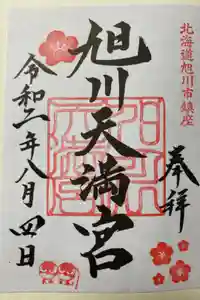 北海道旭川市鎮座
奉拝
旭川天満宮
令和二年八月四日